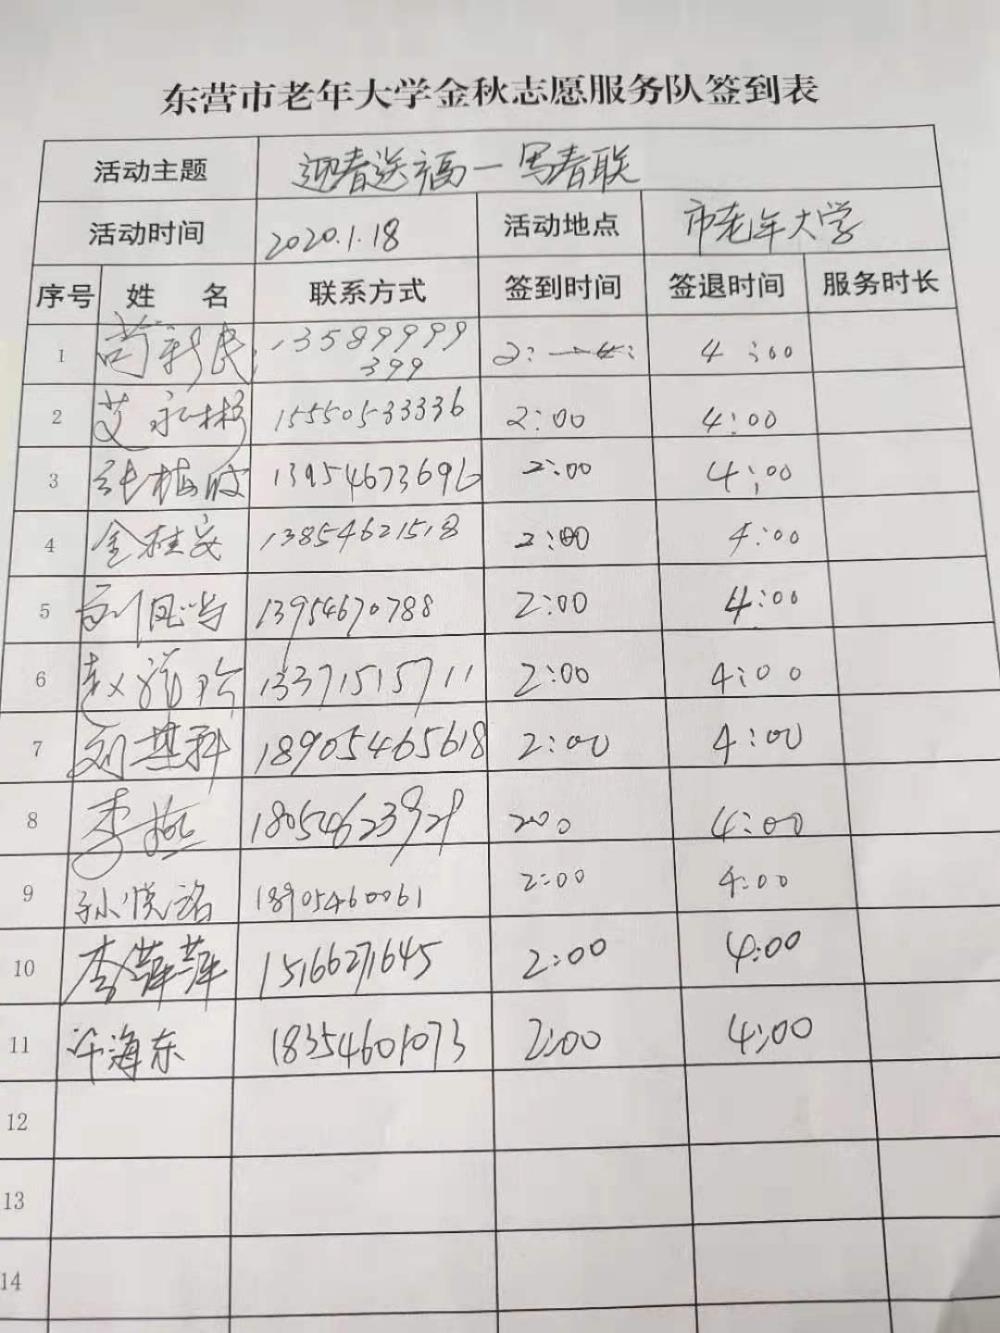 东营市老年大学金秋志愿服务队签到表
活动主题 迎春送福一写春联
活动时间 2020.1.18 活动地点 市老年大学
序号 姓 名 联系方式 签到时间 签退时间 服务时长
1 尚新民 13589999 2: 4:00
399
2 艾永彬 15550533336 2:00 4:00
3 张梅波 13954673696 2:00 4:00
4 金桂安 13854621518 2:00 4:00
5 13954670788 2:00 4:00
6 赵 13371515711 2:00 4:00
7 刘基科 18905465618 2:00 4:00
8 李燕 2:00 4:00
9 孙悦铭 18905460061 2:00 4:00
10 李萍萍 15166271645 2:00 4:00
11 许海东 18354601073 2:00 4:00
12
13
14